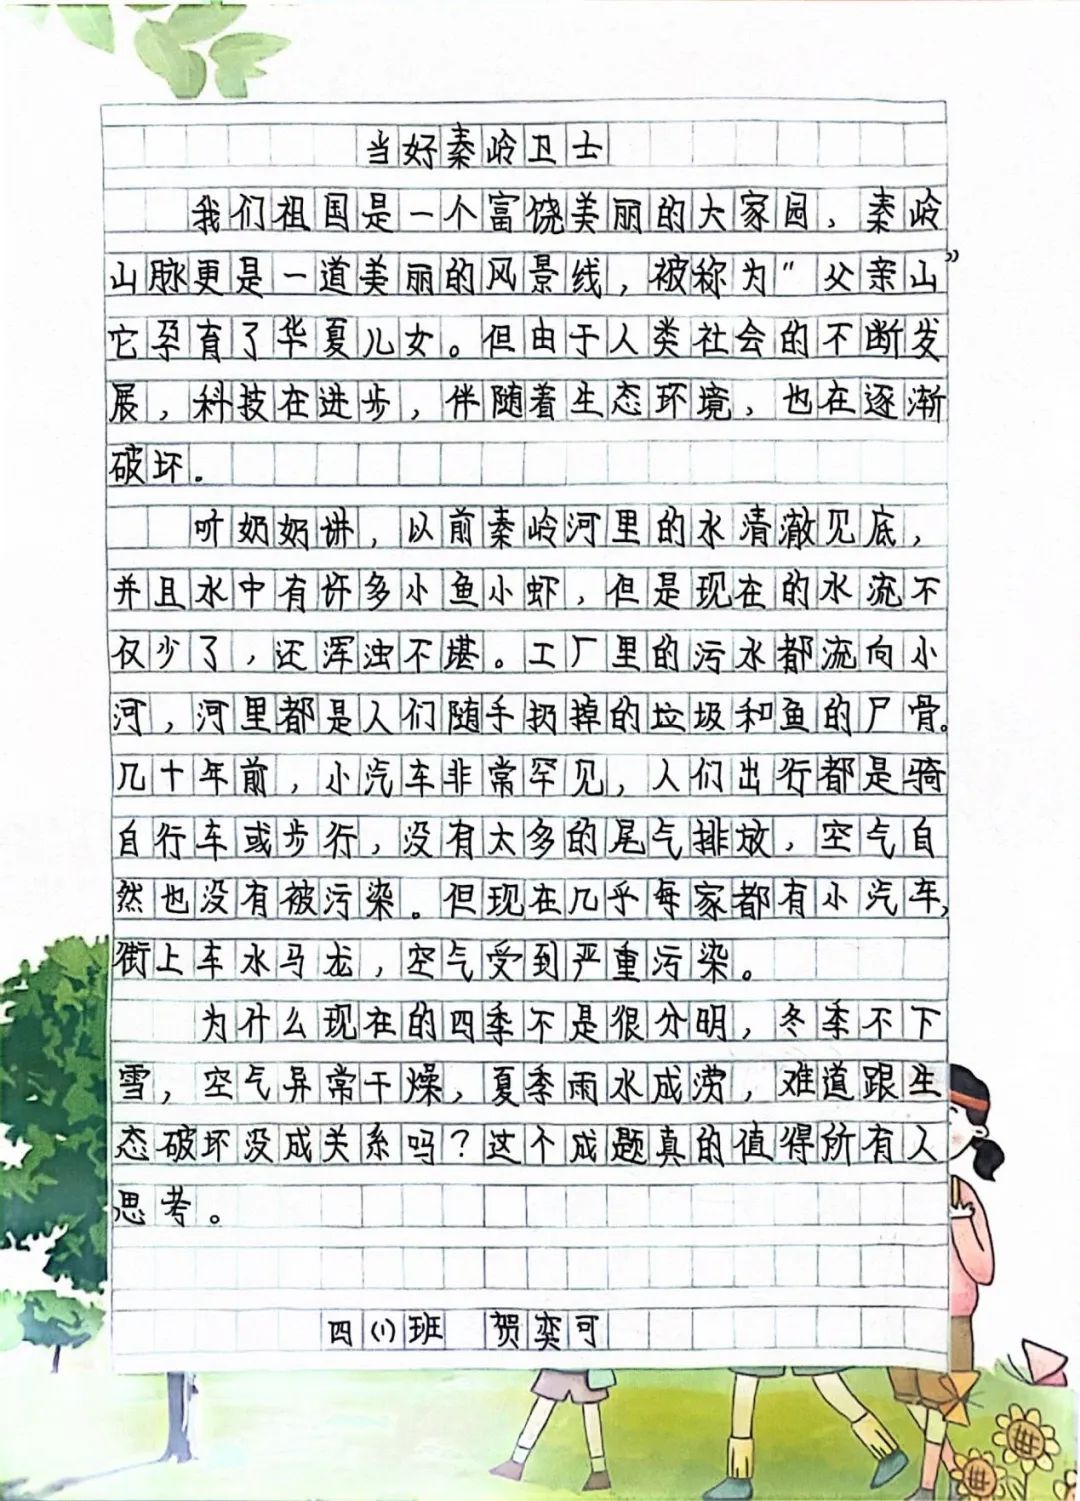 当好秦岭卫士
我们祖国是一个富饶美丽的大家园，秦岭
山脉更是一道美丽的风景线，被称为“父亲山”
它孕育了华夏儿女。但由于人类社会的不断发
展，科技在进步，伴随着生态环境，也在逐渐
破坏。
听奶奶讲，以前秦岭河里的水清澈见底，
并且水中有许多小鱼小虾，但是现在的水流不
仅少了，还浑浊不堪。工厂里的污水都流向小
河，河里都是人们随手扔掉的垃圾和鱼的尸骨。
几十年前，小汽车非常罕见，人们出行都是骑
自行车或步行，没有太多的尾气排放，空气自
然也没有被污染。但现在几乎每家都有小汽车，
街上车水马龙，空气受到严重污染。
为什么现在的四季不是很分明，冬季不下
雪，空气异常干燥，夏季雨水成涝，难道跟生
态破坏没成关系吗？这个成题真的值得所有人
思考。
四(1)班 贺奕可